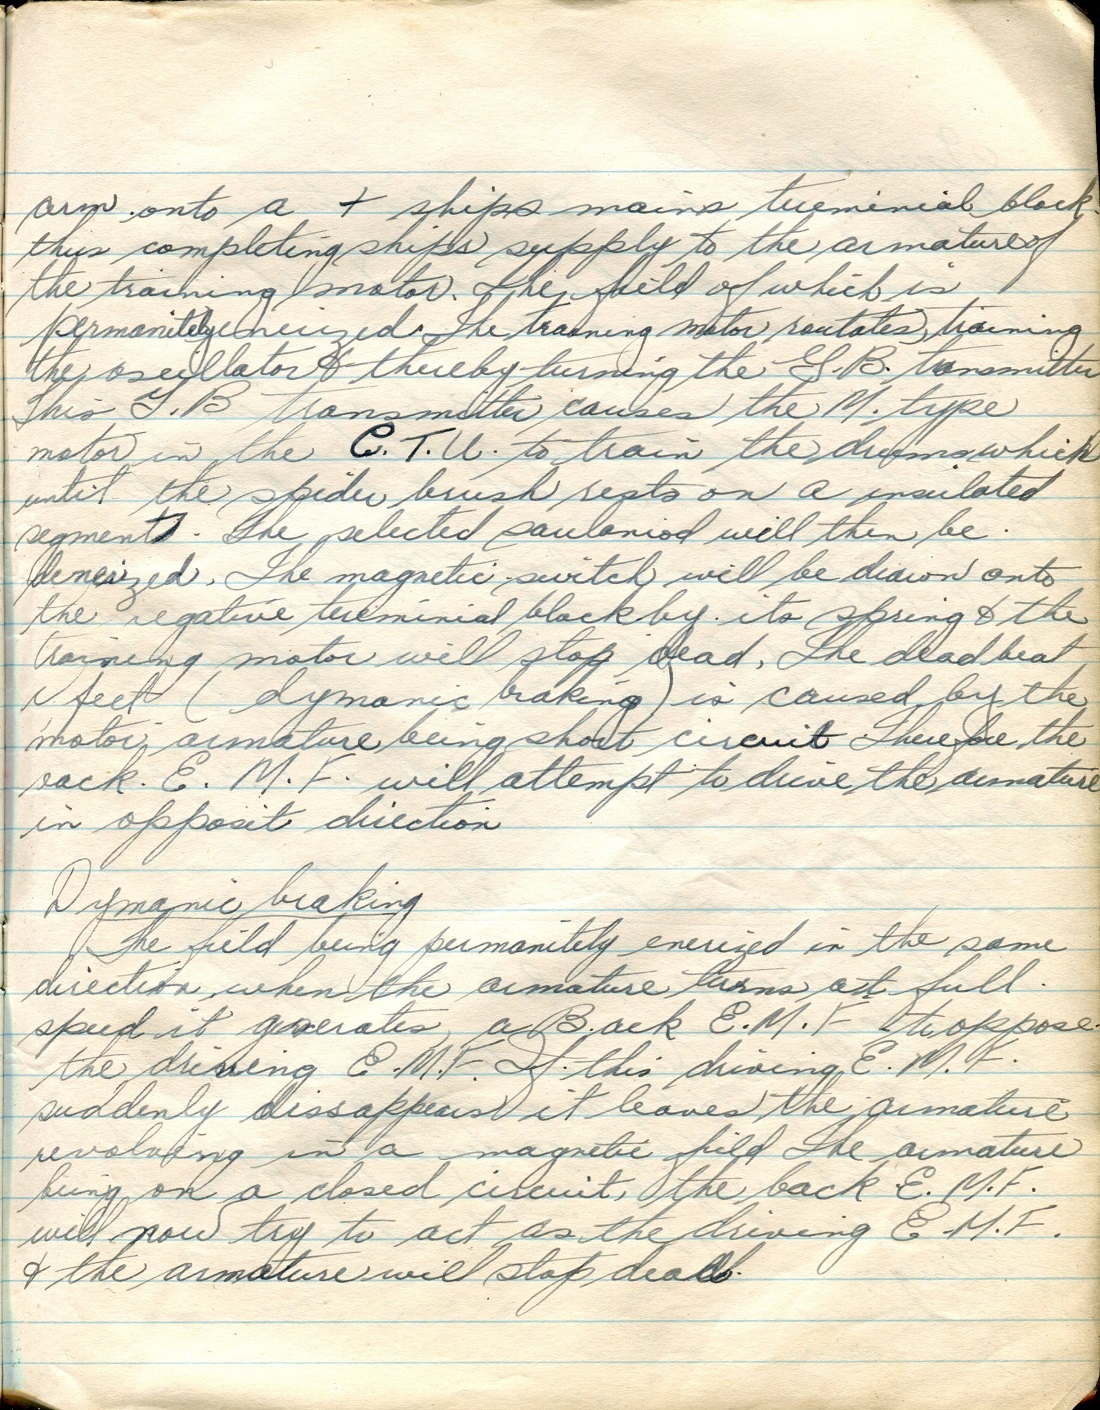 arm onto a + ships mains tueminial block.
thus completing ships supply to the armature of
the training motor. The field of which is
permanitely enerized. The training motor routates, training
the oscillator & thereby turning the G.B. transmitter
This G.B transmitter causes the M. type
motor in the C.T.U. to train the drums which
until the spider brush rests on a insulated
segment. The selected soulaniod will then be
denerized. The magnetic switch will be drawn onto
the negative tueminial block by its spring & the
training motor will stop dead. The deadbeat
feet ( dymanic braking) is caused by the
motor armature being short circuit Therefore the
back. E. M. F. will attempt to drive the armature
in opposit direction
Dymanic braking
The field being permanitely enerized in the same
direction, when the armature turns at full
speed it generates a Back E.M.F to oppose
the driveing E.M.F. If this driving E. M. F.
suddenly dissappears it leaves the armature
revolving in a magnetic field The armature
being on a closed circuit, the back E. M.F.
will now try to act as the driving E.M.F.
& the armature will stop dead.